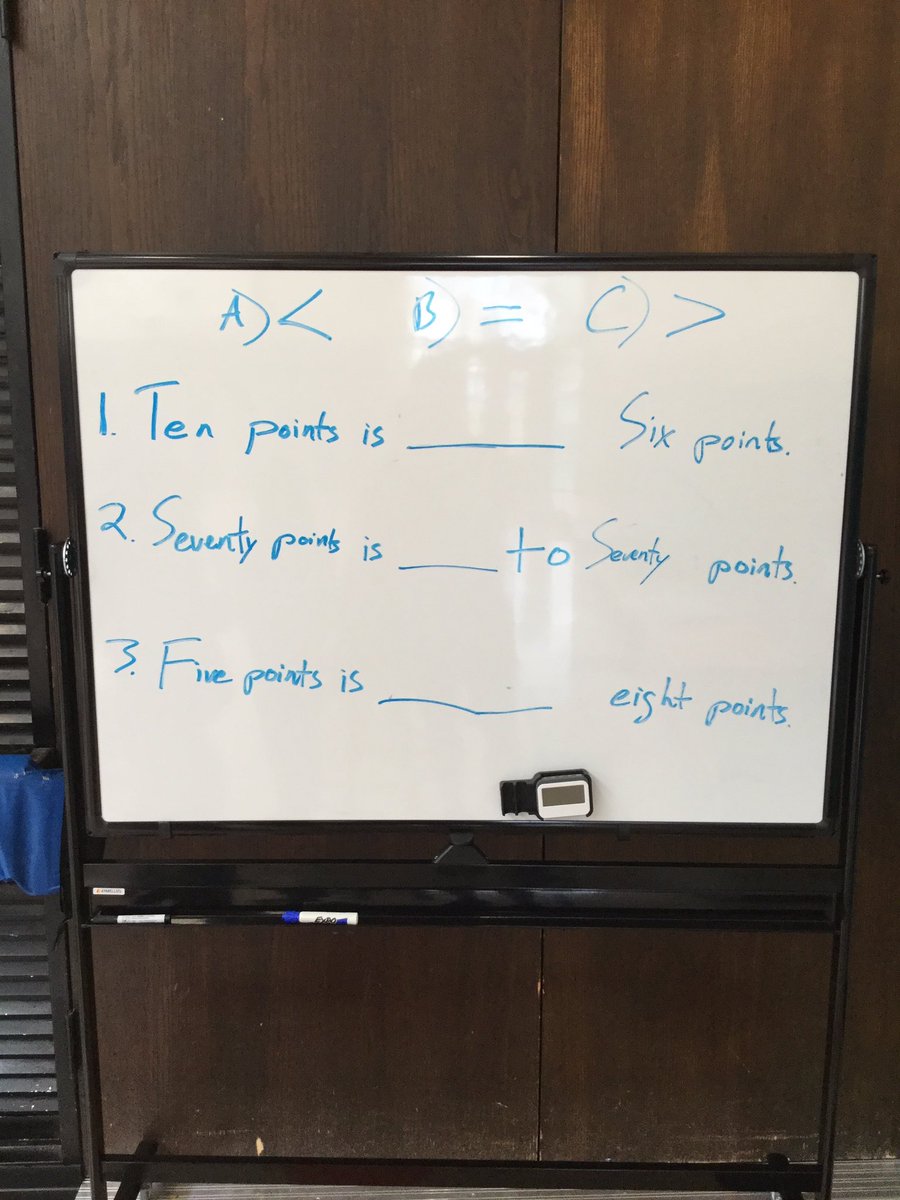 A) < B) = C) >
1. Ten points is ______ Six points.
2. Seventy points is ____ to Seventy points.
3. Five points is ______ eight points.
EXPO